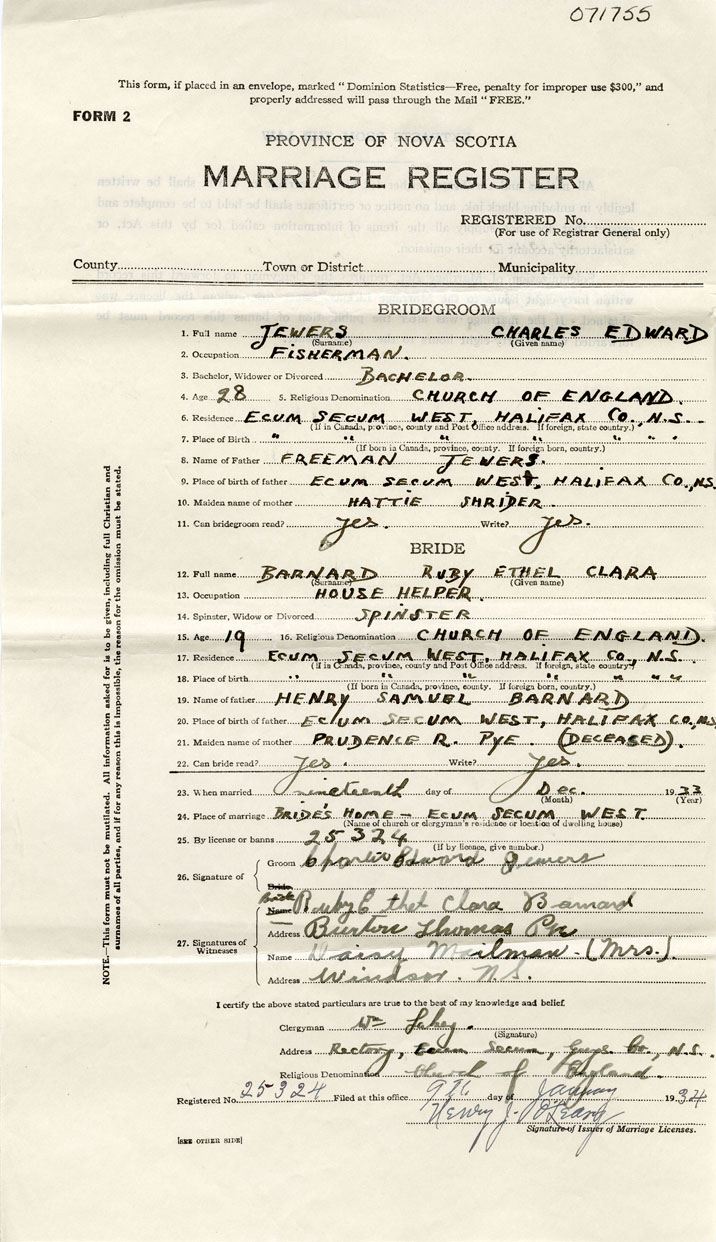 071755
This form, if placed in an envelope, marked "Dominion Statistics—Free, penalty for improper use $300," and
properly addressed will pass through the Mail "FREE."
FORM 2
PROVINCE OF NOVA SCOTIA
MARRIAGE REGISTER
REGISTERED No.
(For use of Registrar General only)
County Town or District Municipality
BRIDEGROOM
1. Full name JEWERS CHARLES EDWARD
(Surname) (Given name)
2. Occupation FISHERMAN.
3. Bachelor, Widower or Divorced BACHELOR.
4. Age 28 5. Religious Denomination CHURCH OF ENGLAND.
6. Residence ECUM SECUM WEST, HALIFAX CO., N.S.
(If in Canada, province, county and Post Office address. If foreign, state country.)
7. Place of Birth " " " " " " "
(If born in Canada, province, county. If foreign born, country.)
8. Name of Father FREEMAN JEWERS.
9. Place of birth of father ECUM SECUM WEST, HALIFAX CO., N.S.
10. Maiden name of mother HATTIE SHRIDER.
11. Can bridegroom read? yes. Write? yes.
BRIDE
12. Full name BARNARD RUBY ETHEL CLARA
(Surname) (Given name)
13. Occupation HOUSE HELPER.
14. Spinster, Widow or Divorced SPINSTER
15. Age 19 16. Religious Denomination CHURCH OF ENGLAND.
17. Residence ECUM SECUM WEST, HALIFAX CO., N.S.
(If in Canada, province, county and Post Office address. If foreign, state country)
18. Place of birth " " " " " " "
(If born in Canada, province, county. If foreign born, country.)
19. Name of father HENRY SAMUEL BARNARD
20. Place of birth of father ECUM SECUM WEST, HALIFAX CO., N.S.
21. Maiden name of mother PRUDENCE R. PYE. (DECEASED).
22. Can bride read? yes. Write? yes.
23. When married nineteenth day of Dec. 1933
(Month) (Year)
24. Place of marriage BRIDE'S HOME - ECUM SECUM WEST.
(Name of church or clergyman's residence or location of dwelling house)
25. By license or banns 25324
(If by licence, give number.)
26. Signature of
Groom Charlie Edward Jewers
Bride
Bride Name Ruby Ethel Clara Barnard
27. Signatures of
Witnesses
Address Burton Thomas Pye
Name Daisy Mailman (Mrs.).
Address Windsor. N.S.
I certify the above stated particulars are true to the best of my knowledge and belief.
Clergyman Wm
(Signature)
Address Rectory, Ecum Secum, Guys. Co., N.S.
Religious Denomination Church of England.
Registered No. 25324 Filed at this office 9th day of January 1934
Henry J. O'Leary
Signature of Issuer of Marriage Licenses.
[SEE OTHER SIDE]
NOTE.—This form must not be mutilated. All information asked for is to be given, including full Christian and
surnames of all parties, and if for any reason this is impossible, the reason for the omission must be stated.